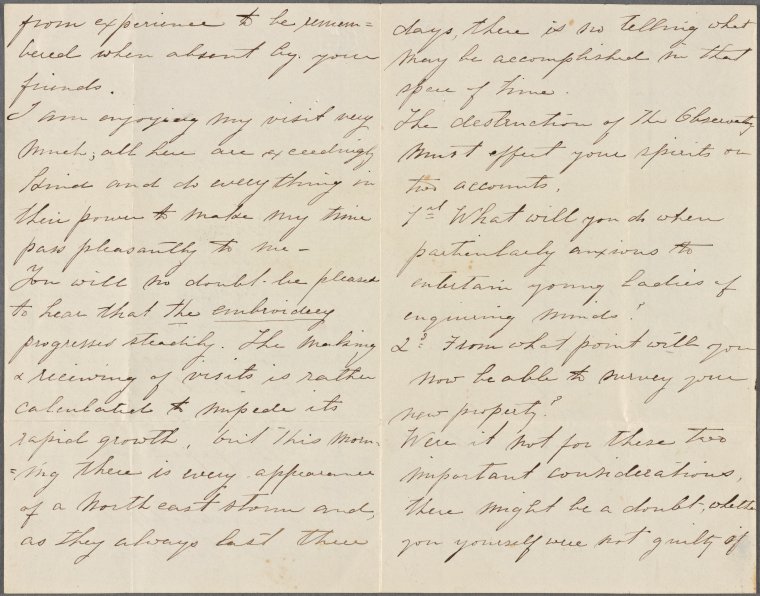 from experience to be remem=
bered when absent by your
friends.
I am enjoying my visit very
much; all here are exceedingly
kind and do everything in
their power to make my time
pass pleasantly to me –
You will no doubt be pleased
to hear that the embroidery
progresses steadily. The making
& receiving of visits is rather
calculated to impede its
rapid growth, but this morn-
=ing there is every appearance
of a North east storm and,
as they always last three
days, there is no telling what
may be accomplished in that
space of time.
The destruction of the Observatory
must effect your spirits on
two accounts.
1st What will you do when
particularly anxious to
entertain young ladies of
enquiring minds?
2d From what point will you
now be able to survey your
new property?
Were it not for these two
important considerations,
there might be a doubt, whether
you yourself were not guilty of